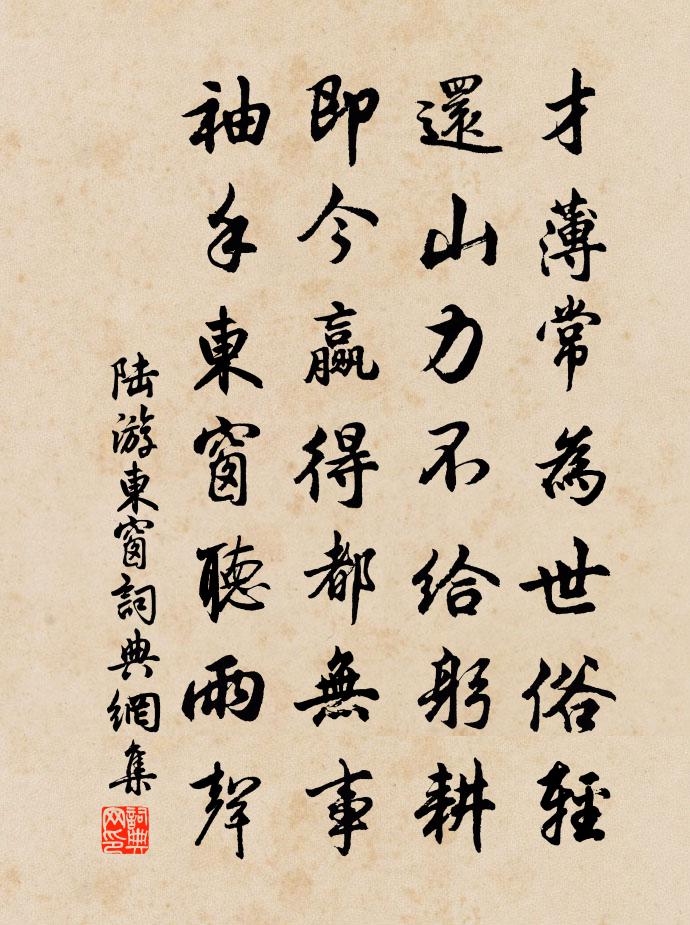 才薄常為世俗輕
還山力不給躬耕
即今贏得都無事
袖手東窗聽雨聲
陆游東窗詞典網集
詞典网印